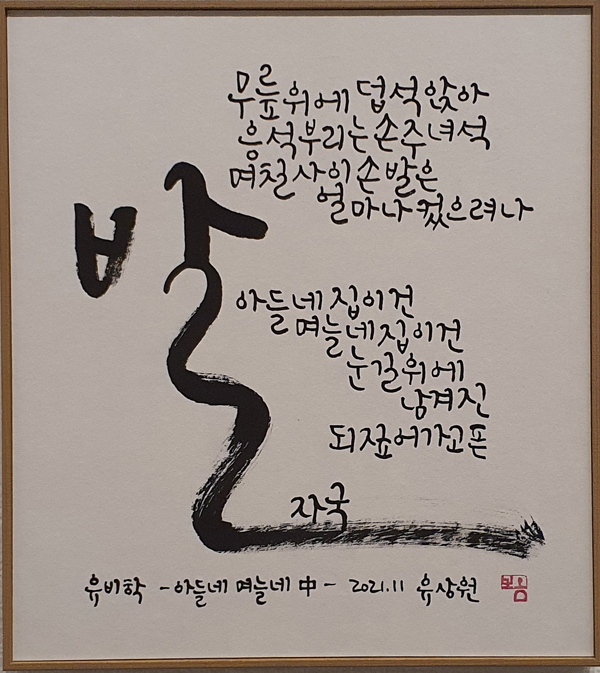 무릎위에 덥석앉아
응석부리는 손주녀석
며칠사이 손발은
얼마나 컸으려나
발
아들네 집이건
며늘네 집이건
눈길위에
남겨진
되짚어가고픈
자국
유비학 -아들네 며늘네 中- 2021.11 유상원